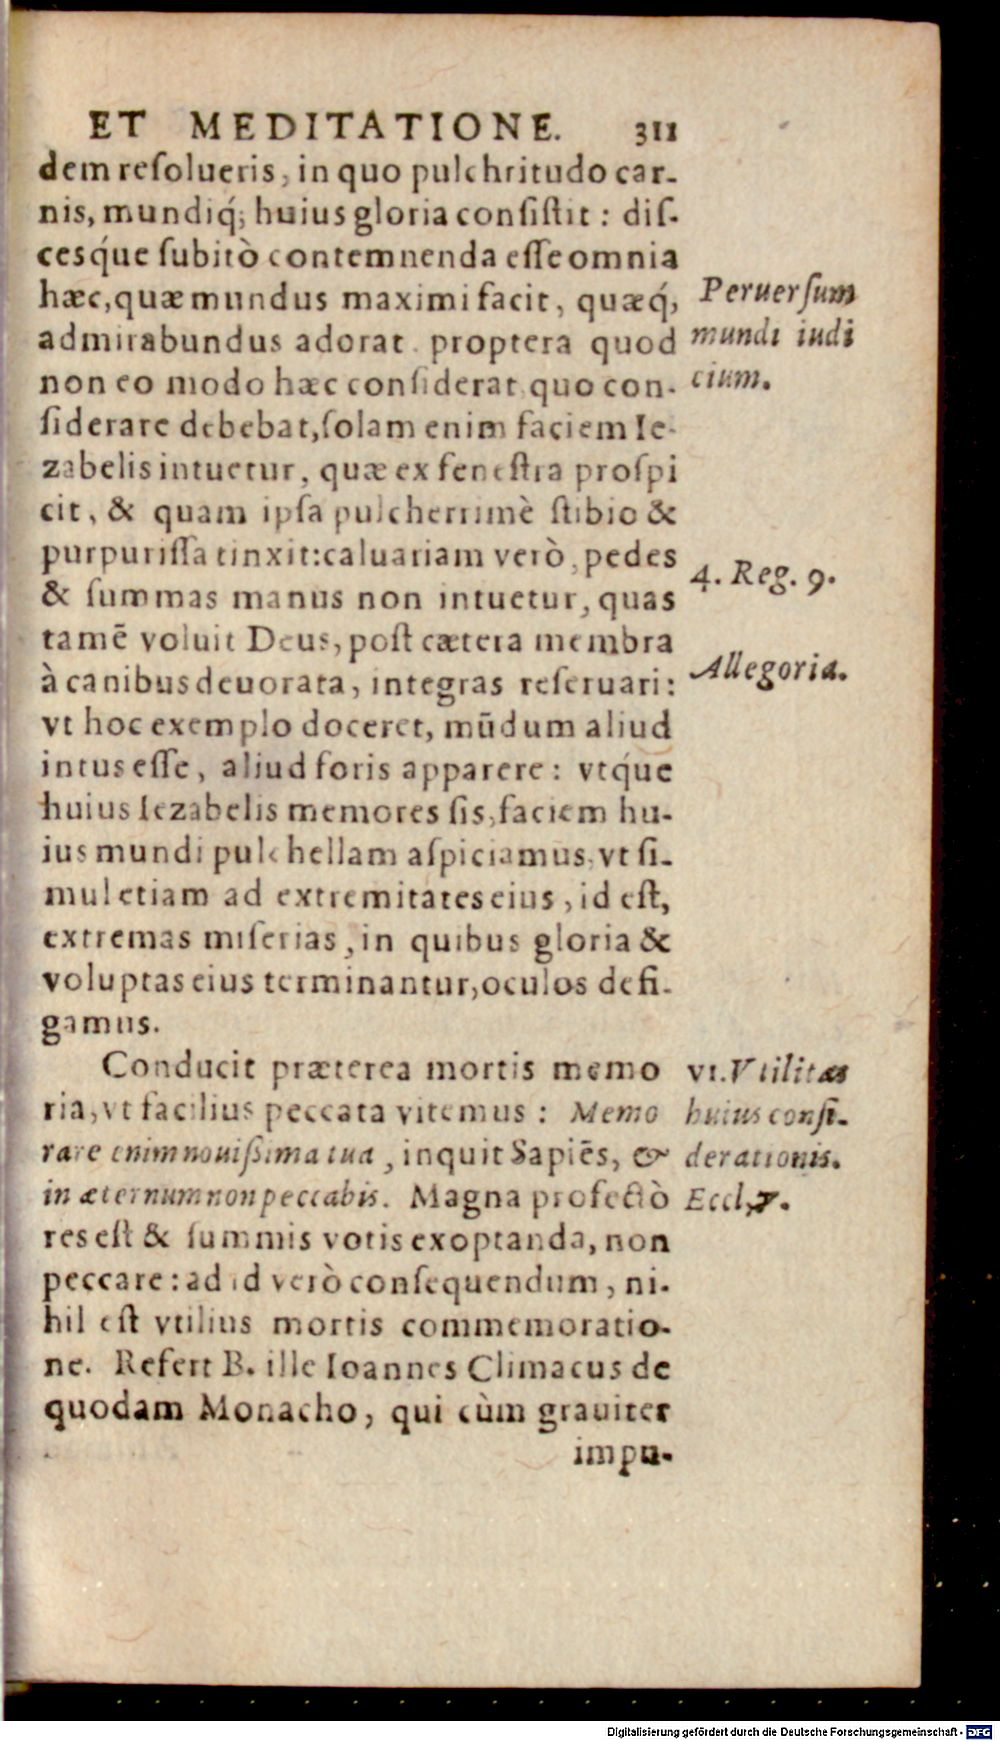 ET MEDITATIONE. 311
dem reſolueris, in quo pulchritudo car-
nis, mundiq́; huius gloria conſiſtit : diſ-
cesq́ue ſubitò contemnenda eſſe omnia
hæc, quæ mundus maximi facit, quæq́;
admirabundus adorat. proptera quod
non eo modo hæc conſiderat quo con-
ſiderare debebat, ſolam enim faciem Ie-
zabelis intuetur, quæ ex feneſtra proſpi
cit, & quam ipſa pulcherrimè ſtibio &
purpuriſſa tinxit: caluariam verò, pedes
& ſummas manus non intuetur, quas
tamē voluit Deus, poſt cætera membra
à canibus deuorata, integras reſeruari:
vt hoc exemplo doceret, mūdum aliud
intus eſſe, aliud foris apparere: vtq́ue
huius Iezabelis memores ſis, faciem hu-
ius mundi pulchellam aſpiciamus, vt ſi-
mul etiam ad extremitates eius, id eſt,
extremas miſerias, in quibus gloria &
voluptas eius terminantur, oculos defi-
gamus.
Conducit præterea mortis memo
ria, vt facilius peccata vitemus : Memo
rare enim nouißima tua, inquit Sapiēs, &
in æternum non peccabis. Magna profectò
res eſt & ſummis votis exoptanda, non
peccare: ad id verò conſequendum, ni-
hil eſt vtilius mortis commemoratio-
ne. Refert B. ille Ioannes Climacus de
quodam Monacho, qui cùm grauiter
impu-
Peruerſum
mundi iudi
cium.
4. Reg. 9.
Allegoria.
VI. Vtilitas
huius conſi-
derationis.
Eccl. 7.
Digitalisierung gefördert durch die Deutsche Forschungsgemeinschaft - DFG